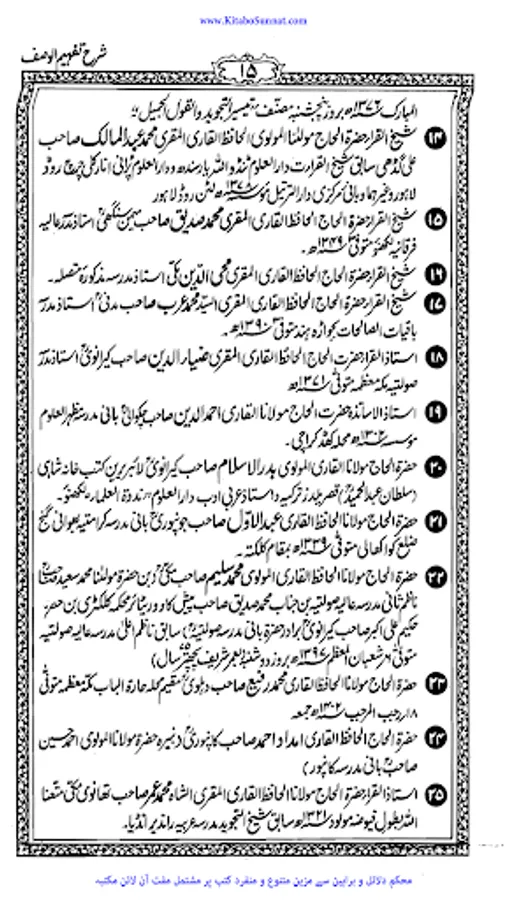 www.KitaboSunnat.com
شرح تفہیم الوقف
۱۵
المبارک ۱۳۷۲ھ بروز پنجشنبہ مصنف تیسیر التجوید والقول الجمیل؛
۱۴ شیخ القراء حضرۃ الحاج مولٰنا المولوی الحافظ القاری المقری محمد عبد المالک صاحب
علی گڈھی سابق شیخ القراءت دار العلوم ٹنڈو اللہ یار سندھ ودار العلوم پرانی انارکلی چرچ روڈ
لاہور وغیرہما وبانی مرکزی دار الترتیل لٹن روڈ لاہور
۱۵ شیخ القراء حضرۃ الحاج الحافظ القاری المقری محمد صدیق صاحب استاذ مدرسہ عالیہ
فرقانیہ لکھنؤ متوفی ۱۳۴۹ھ۔
۱۶ شیخ القراء حضرۃ الحاج الحافظ القاری المقری محی الدین مکی استاذ مدرسہ مذکورہ متصلہ۔
۱۷ شیخ القراء حضرۃ الحاج الحافظ القاری المقری السید محمد عرب صاحب مدنی استاذ مدرسہ
باقیات الصالحات بجواڑہ ہند متوفی ۱۳۹۰ھ۔
۱۸ استاذ القراء حضرت الحاج الحافظ القاری المقری ضیاء الدین صاحب کیرانوی استاذ مدرسہ
صولتیہ مکہ معظمہ متوفی ۱۳۷۱ھ
۱۹ استاذ الاساتذہ حضرت الحاج مولانا القاری احمد الدین صاحب چکوالی بانی مدرسہ مظہر العلوم
مؤسسہ ۱۳۰۲ھ محلہ کھڈہ کراچی۔
۲۰ حضرۃ الحاج مولانا القاری المولوی بدر الاسلام صاحب کیرانوی لائبریرین کتب خانہ شاہی
(سلطان عبد الحمید) قصر یلدز ترکیہ و استاذ عربی ادب دار العلوم ندوۃ العلماء لکھنؤ۔
۲۱ حضرۃ الحاج مولانا الحافظ القاری عبد الاول صاحب جونپوری بانی مدرسہ کرامتیہ بھوانی گنج
ضلع نواکھالی متوفی ۱۳۳۹ھ بمقام کلکتہ۔
۲۲ حضرۃ الحاج مولانا الحافظ القاری المولوی محمد سلیم صاحب مکی بن حضرۃ مولٰنا محمد سعید صاحب
ناظم ثانی مدرسہ عالیہ صولتیہ بن جناب محمد صدیق صاحب محکمہ کلکٹری بن حضرۃ
حکیم علی اکبر صاحب کیرانوی برادر حضرۃ بانی مدرسہ صولتیہ) سابق ناظم اعلیٰ مدرسہ عالیہ صولتیہ
متوفی شعبان المعظم ۱۳۹۷ھ بروز دوشنبہ (بعمر شریف سال)
۲۳ حضرۃ الحاج مولانا الحافظ القاری محمد رفیع صاحب دہلوی مقیم محلہ حارۃ الباب مکہ معظمہ متوفی
۱۸ رجب المرجب ۱۳۰۲ھ جمعہ
۲۴ حضرۃ الحاج الحافظ القاری امداد احمد صاحب کانپوری (نبیرہ حضرۃ مولانا المولوی احمد حسین
صاحب بانی مدرسہ کانپور)
۲۵ استاذ القراء حضرۃ الحاج مولانا الحافظ القاری المقری الشاہ محمد عمر صاحب تھانوی مکی متعنا
اللہ بطول فیوضہ مولود ۱۳۲۱ھ سابق شیخ التجوید مدرسہ عربیہ راندیر انڈیا۔
محکم دلائل و براہین سے مزین متنوع و منفرد کتب پر مشتمل مفت آن لائن مکتبہ